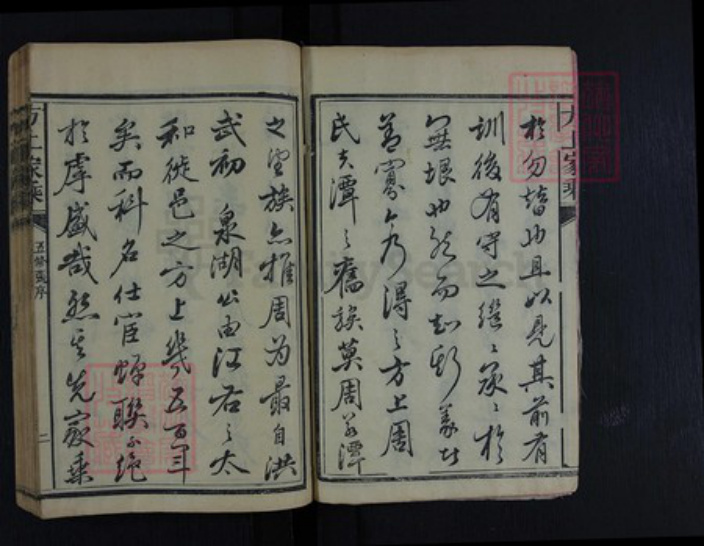 於勿替也且以見其前有
訓後有守之繼〻承〻於
無垠也然而知斯義者
蓋寡今乃得之方上周
氏夫潭之舊族莫周若潭
之望族亦惟周为最自洪
武初 泉湖公由江右之太
和徙邑之方上幾五百年
矣而科名仕宦蟬聯不绝
於虖盛哉然其先家乘
方上家乘
五修義序
二